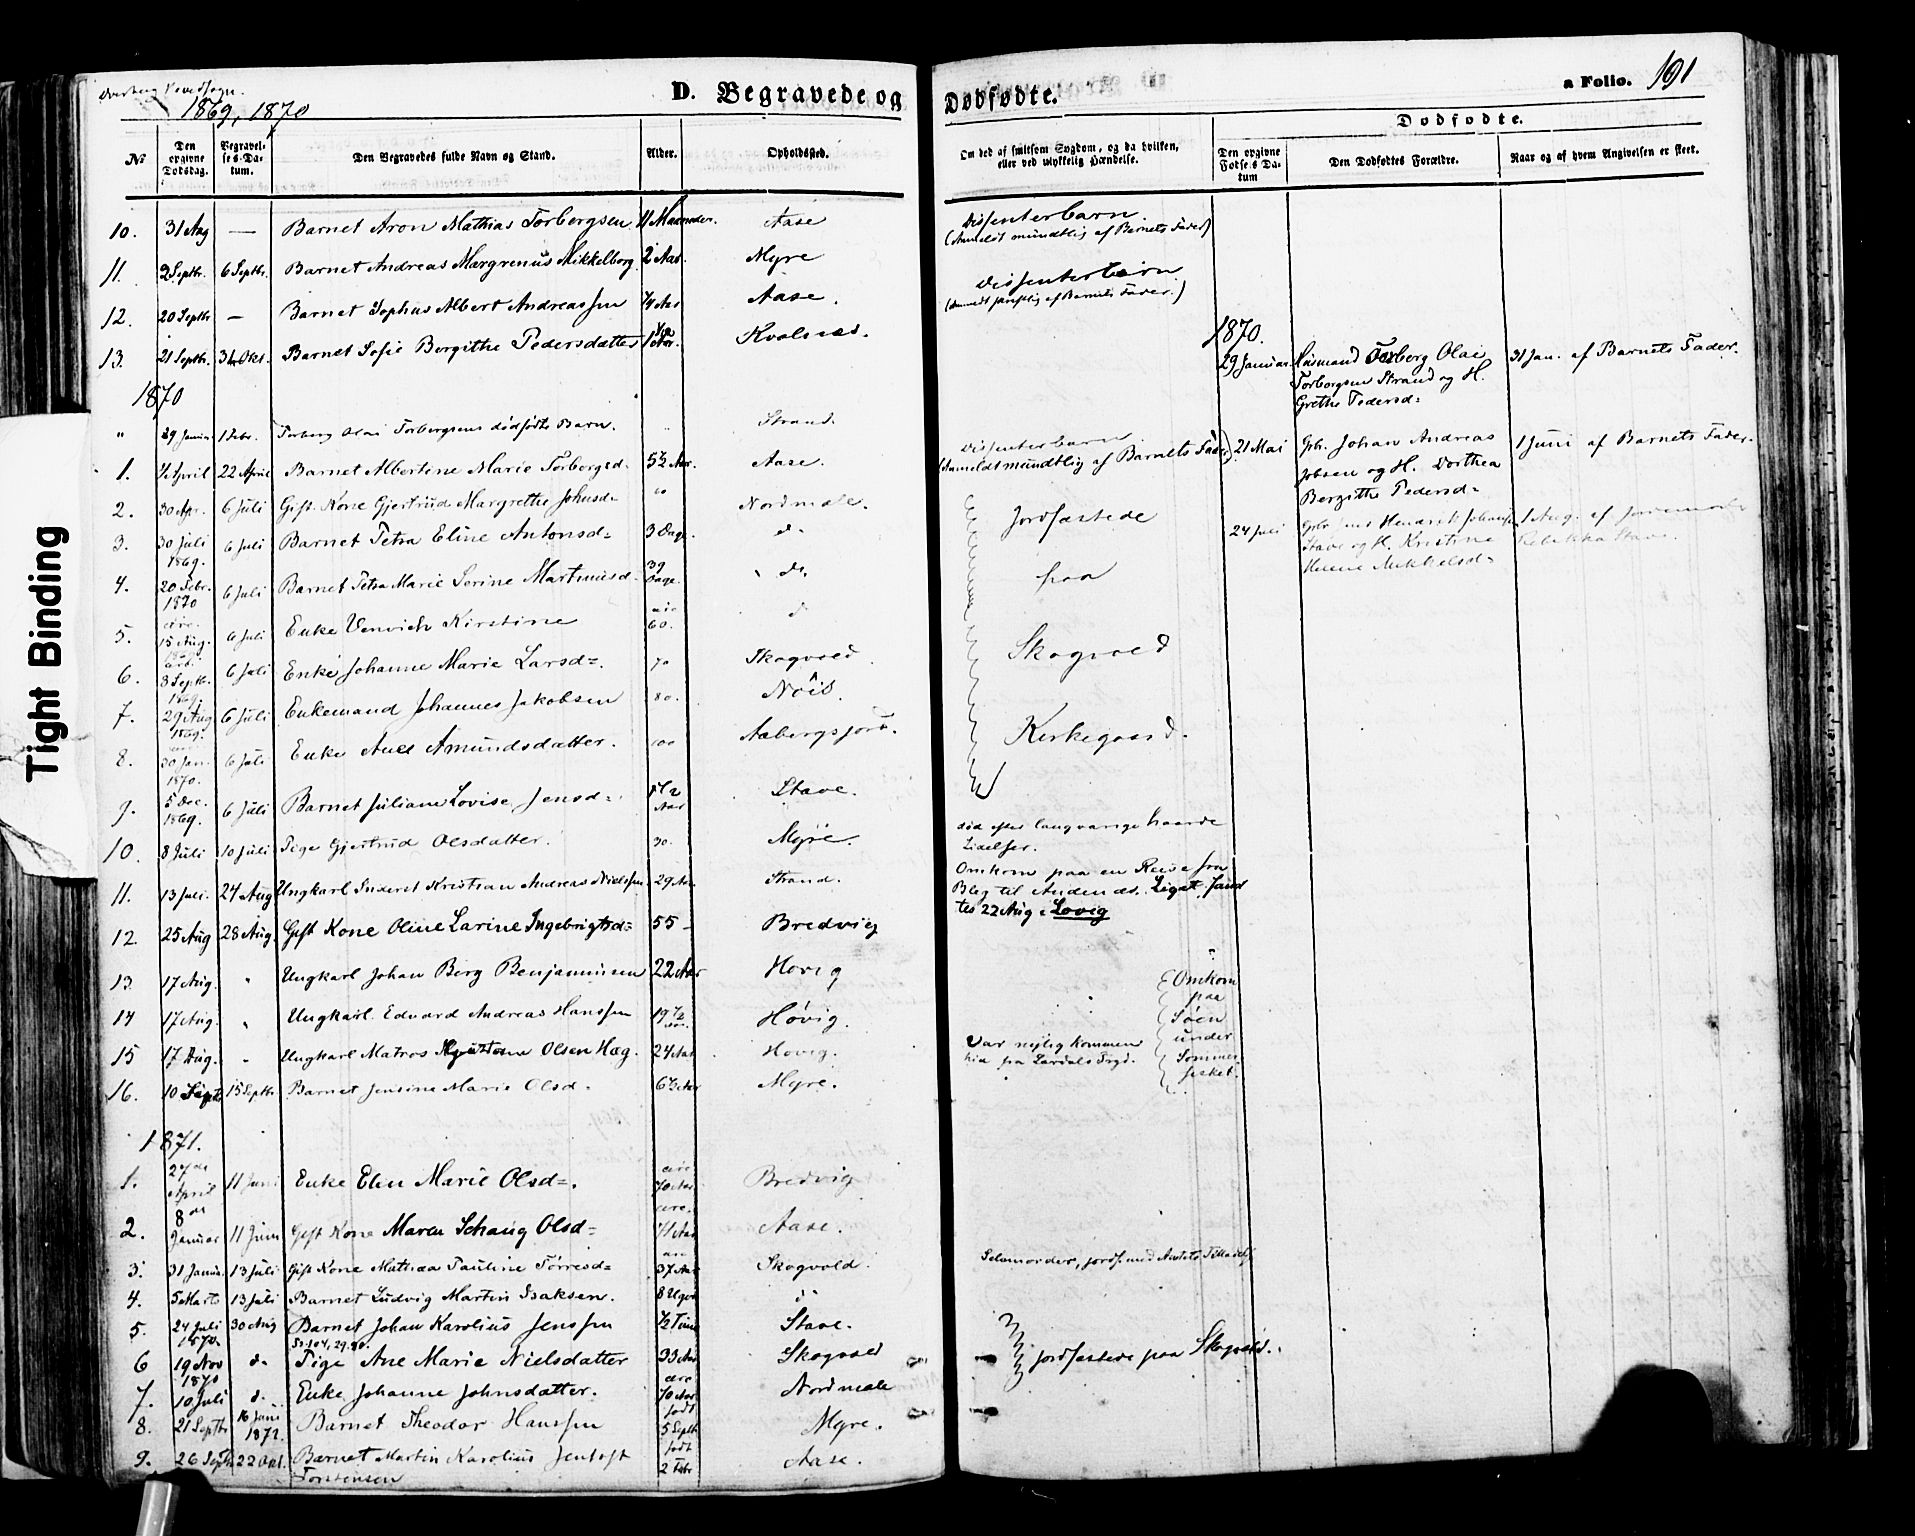 Tight Binding
1869, 1870
D. Begravede og Dødfødte.
a Folio. 191
Dødfødte.
No
Den opgivne Dødsdag.
Begravelses-Datum.
Den Begravedes fulde Navn og Stand.
Alder.
Opholdssted.
Om død af smitsom Sygdom, og da hvilken, eller ved ulykkelig Hændelse.
Den opgivne Fødsels Datum
Den Dødfødtes Forældre.
Naar og af hvem Angivelsen er skeet.
10. 31 Aug — Barnet Aron Mathias Torbergsen 11 Maaneder. Aase Dissenterbarn.
(Anmeldt mundtlig af Barnets Fader)
11. 2 Septbr. 6 Septbr. Barnet Andreas Margrenus Mikkelborg 2 Aar. Myre Dissenterbarn.
(Anmeldt skriftlig af Barnets Fader.)
12. 20 Septbr — Barnet Sophus Albert Andreassen 1/4 Aar Aase.
13. 21 Septbr. Barnet Sofie Bergithe Pedersdatter Kvalnæs.
1870.
29 Januar. Huusmand Torberg Olai Torbergsen Strand og H. Grethe Pedersd= 31 Jan. af Barnets Fader.
1870
" 29 Januar 1 Febr. Torberg Olai Torbergsens dødfødte Barn. Strand
1. 1/2 April 22 April Barnet Albertine Marie Torbergsd= 5 1/2 Aar. Aase. Dissenterbarn
(Anmeldt mundtlig af Barnets Fader)
21 Mai Gbr. Johan Andreas Jobsen og H. Dorthea Bergithe Pedersd= 1 Juni af Barnets Fader.
2. 30 Apr. 6 Juli Gift Kone Gjertrud Margrethe Johnsd= 60 Nordmæle. Jordfæstede
24 Juli Gbr. Jens Hendrik Johansen Stave og H. Kristine Helene Mikkelsd= 1 Aug. af Jordemoder Rebekka Stave.
3. 30 Juli 1869. 6 Juli Barnet Petra Eline Antonsd= 3 Dage. d=
4. 20 Febr. 1870 6 Juli Barnet Petra Marie Serine Martinusd= 39 Dage. d= paa
5. circ. 15 Aug. 1869 6 Juli Enke Venvich Kirstine circ 60. d=
6. 3 Septb. 1869. 6 Juli Enke Johanne Marie Larsd=. 70 Skogvold. Skogvold
7. 29 Aug 1869. 6 Juli Enkemand Johannes Jakobsen 80. Nöis.
8. 30 Jan. 1870. 6 Juli Enke Ane Amundsdatter. 100 Aabergsjord. Kirkegaard.
9. 5 Dec. 1869. 6 Juli Barnet Juliane Lovise Jensd= Aar Stave.
10. 8 Juli 10 Juli Pige Gjertrud Olsdatter. 30. Myre. død efter langvarige haarde Lidelser.
11. 13 Juli. 24 Aug Ungkarl Inderst Kristian Andreas Nielsen 29 Aar Strand. Omkom paa en Reise fra Bleg til Andenæs. Liget fandtes 22 Aug i Lovig
12. 25 Aug 28 Aug. Gift Kone Oline Larine Ingebrigtsd= 55 - Bredvig
13 17 Aug. " Ungkarl Johan Berg Benjaminsen 22 Aar Hovig Omkom paa Søen under Sommerfisket.
14 17 Aug. " Ungkarl Edvard Andreas Hanssen 19 1/2 Aar. Høvig.
15 17 Aug. " Ungkarl Matros Olsen Hæg. 24 Aar Hovig. Var nylig kommen hid fra Lærdals Prgd.
16. 10 Septbr 15 Septbr Barnet Jensine Marie Olsd= 6 1/2 Aar Myre.
1871.
1. 27de April 11 Juni Enke Elen Marie Olsd=. circ 70 Aar. Bredvig
2. 8de Januar 11 Juni Gift Kone Maren Schaug Olsd= circ. 71 Aar Aase.
3. 31 Januar. 13 Juli Gift Kone Mathea Pauline Törresd= 37 Aar Skogvold. Selvmorder, jordf. med Amtets Tilladelse
4. 5 Marts 13 Juli Barnet Ludvig Martin Isaksen. 8 Uger
5. 24 Juli 1870. 30 Aug Barnet Johan Karolius Jenssen 1/2 Time Stave.
6 19 Nov 1870 d= Pige Ane Marie Nielsdatter 33 Aar Skogvold jordfæstede paa Skogvold.
7. 10 Juli d= Enke Johanne Johnsdatter. circ 70 Aar Nordmæle
8. 21 Septbr 16 Juni 1872. Barnet Theodor Hanssen født 5 Septbr Myre.
9. 26 Septbr 22 Okt. Barnet Martin Karolius Jentoft Torstensen født 2 Febr Aase.